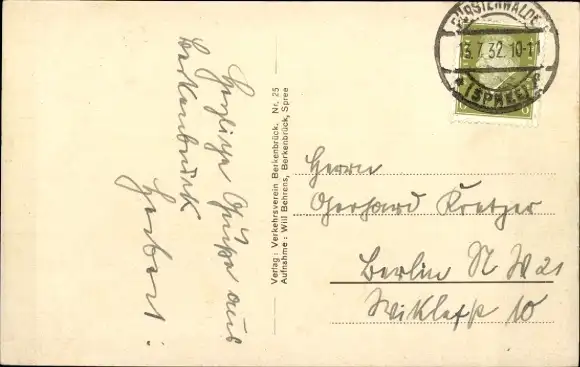 Herzliche Grüße aus
Berkenbrück
Herbert.
Verlag: Verkehrsverein Berkenbrück. Nr. 25
Aufnahme: Will Behrens, Berkenbrück, Spree
FÜRSTENWALDE
13.7.32. 10-11
* (SPREE)
Herrn
Gerhard Kretzer
Berlin N W 21
Wiklefstr 10